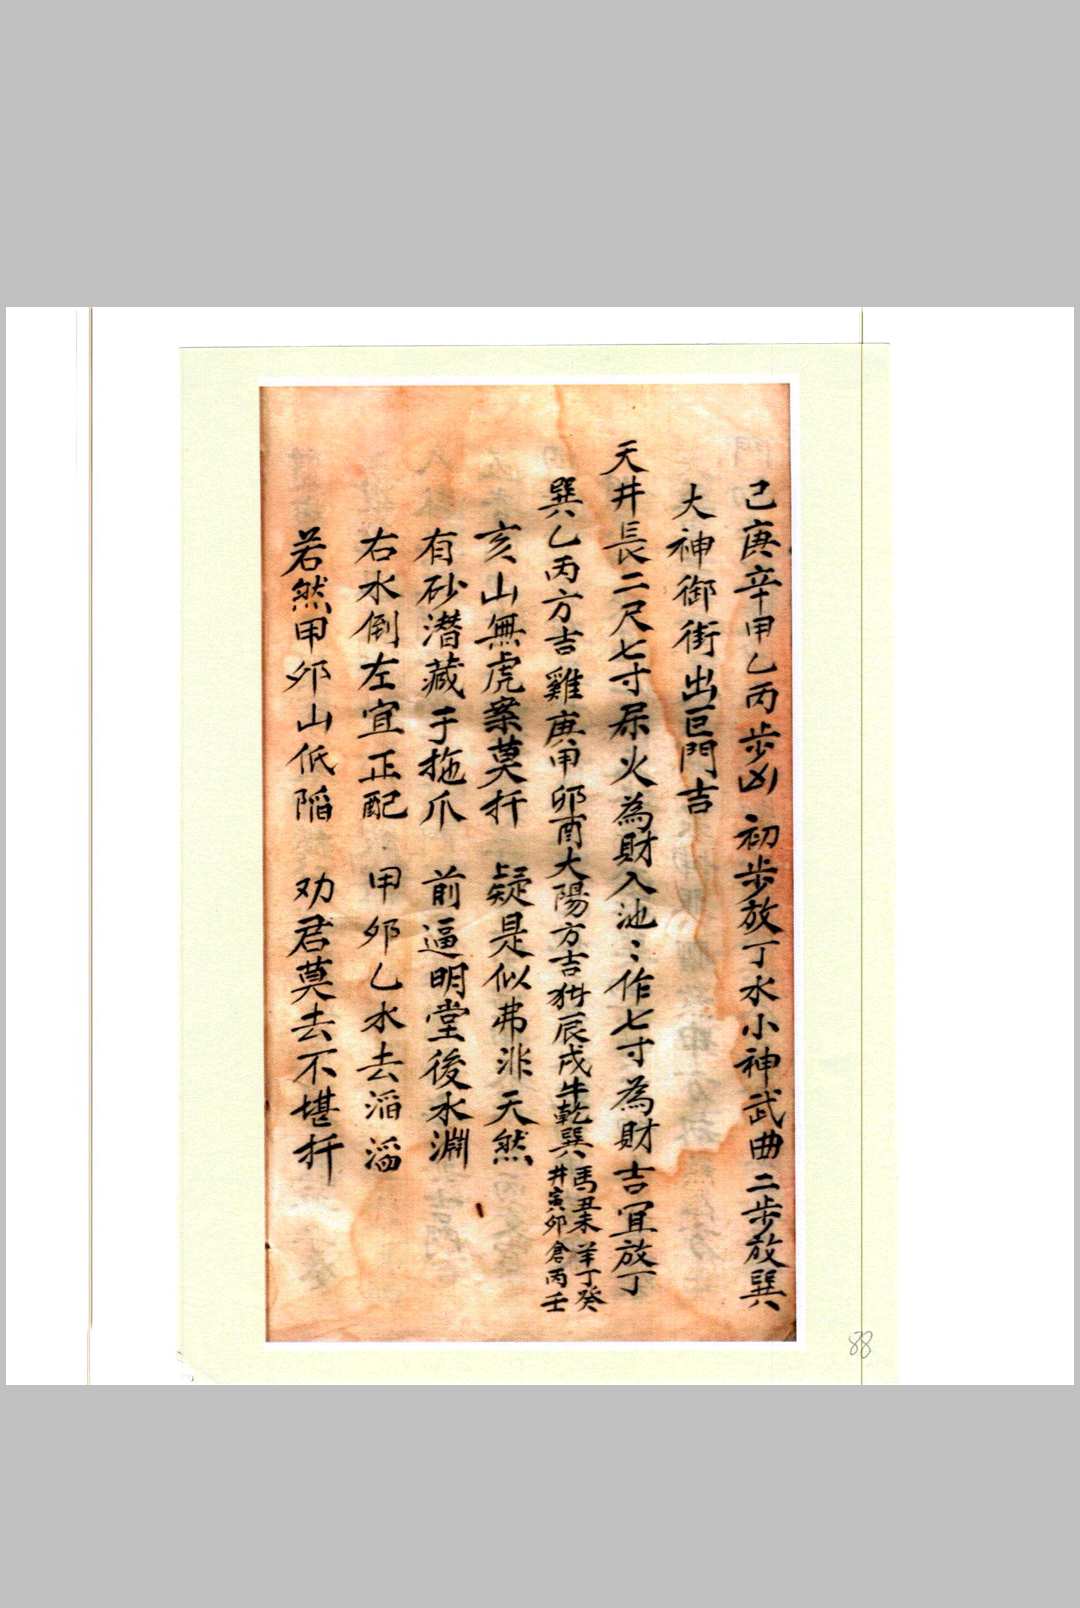 己庚辛甲乙丙步凶 初步放丁水小神武曲二步放巽
大神御街出巨門吉
天井長二尺七寸屎火為財入池:作七寸為財吉宜放丁
巽乙丙方吉雞庚甲卯酉大陽方吉 辰戌牛乾巽馬丑未羊丁癸
井寅卯倉丙壬
亥山無虎案莫扦 疑是似弗非天然
有砂潛藏于拖爪 前逼明堂後水淵
右水倒左宜正配 甲卯乙水去滔滔
若然甲卯山低陷 劝君莫去不堪扦
88